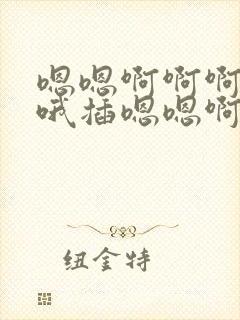 嗯嗯啊啊啊
哦插嗯嗯啊
纽金特